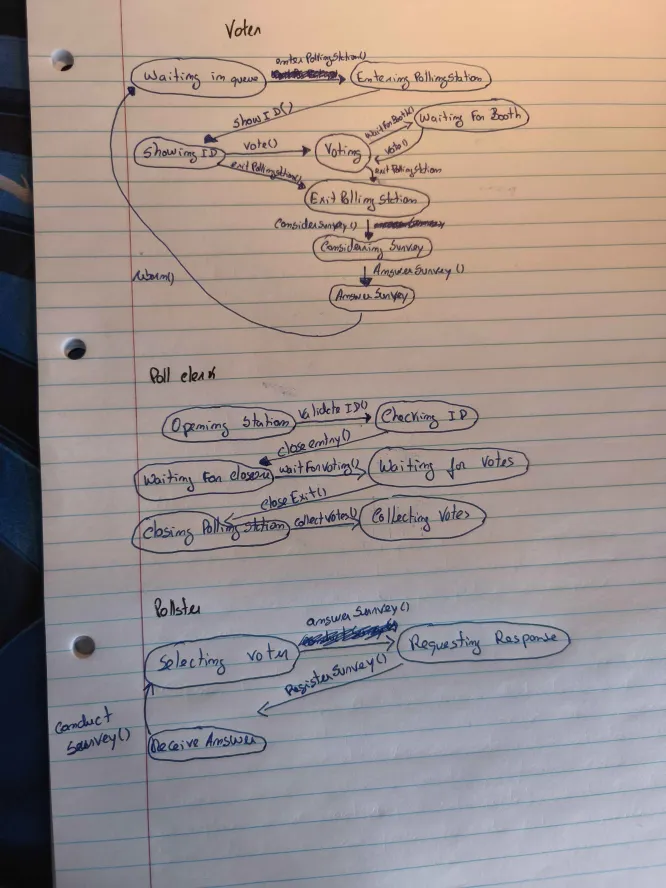 Voter
enterPollingStation()
Waiting in queue
Entering PollingStation
ShowID()
waitForBooth()
Waiting For Booth
Showing ID
Vote()
Voting
Vote()
exitPollingStation()
exitPollingStation
Exit Polling Station
ConsiderSurvey()
Considering Survey
AnswerSurvey()
Answer Survey
Poll clerk
Opening Station
ValidateID()
Checking ID
closeEntry()
Waiting For closure
waitForVoting()
Waiting for Votes
closeExit()
Closing Polling Station
collectVotes()
Collecting Votes
Pollster
answerSurvey()
Selecting Voter
Requesting Response
RegisterSurvey()
Conduct
Survey()
Receive Answer